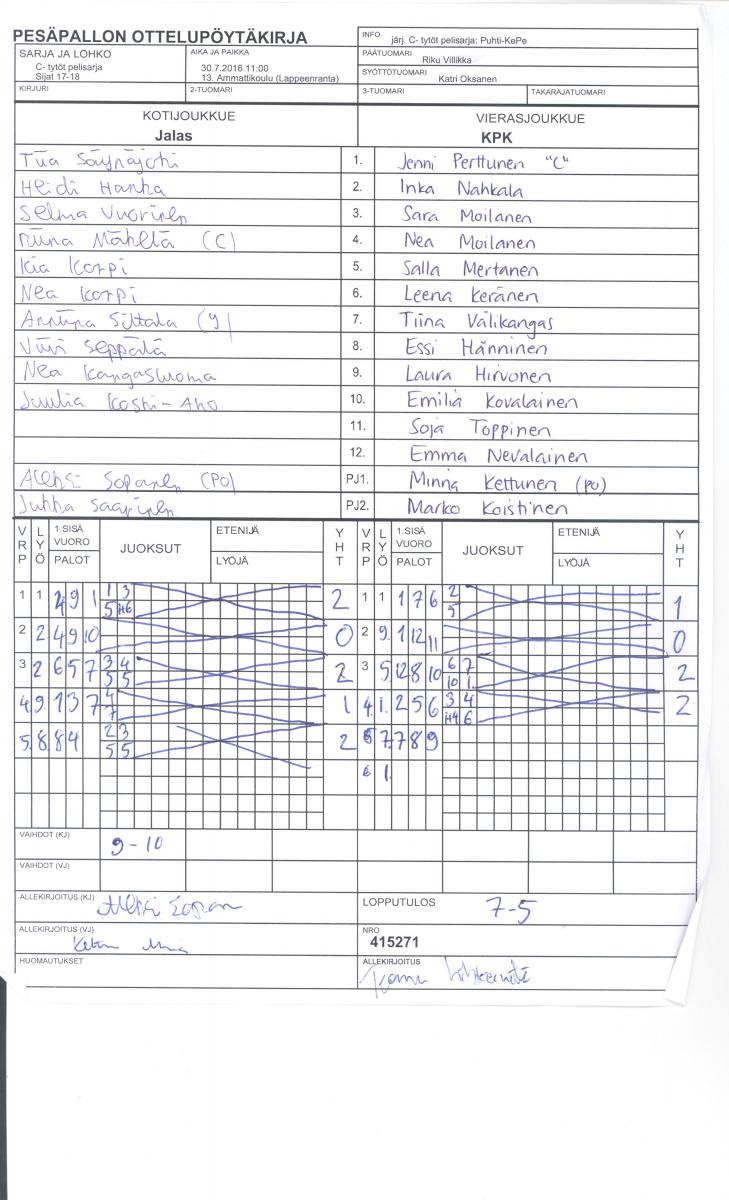 PESÄPALLON OTTELUPÖYTÄKIRJA
INFO järj. C- tytöt pelisarja: Puhti-KePe
SARJA JA LOHKO
C- tytöt pelisarja
Sijat 17-18
AIKA JA PAIKKA
30.7.2016 11:00
13. Ammattikoulu (Lappeenranta)
PÄÄTUOMARI
Riku Villikka
SYÖTTÖTUOMARI
Katri Oksanen
KIRJURI 2-TUOMARI 3-TUOMARI TAKARAJATUOMARI
KOTIJOUKKUE
Jalas
VIERASJOUKKUE
KPK
Tiia 1. Jenni Perttunen "C"
Heidi Hanka 2. Inka Nahkala
Selma Vuorinen 3. Sara Moilanen
Riina Mäkelä (C) 4. Nea Moilanen
Kia Korpi 5. Salla Mertanen
Nea Korpi 6. Leena Keränen
Anniina Siltala 7. Tiina Välikangas
Viivi Seppälä 8. Essi Hänninen
Nea Kangasluoma 9. Laura Hirvonen
Juulia Koski-Aho 10. Emilia Kovalainen
11. Soja Toppinen
12. Emma Nevalainen
Aleksi Soponen (PO) PJ1. Minna Kettunen (PO)
Jukka Saarinen PJ2. Marko Koistinen
VRP LYÖ 1.SISÄ VUORO PALOT JUOKSUT ETENIJÄ LYÖJÄ YHT VRP LYÖ 1.SISÄ VUORO PALOT JUOKSUT ETENIJÄ LYÖJÄ YHT
1 1 2 1 1 1 7 6 2 5 1
2 2 4 9 10 0 2 9. 1 12 11 0
3 2 6 5 7 3 4 5 5 2 3 5 12 8 10 6 7 10 1 2
4. 9. 1 3 7 4 7 1 4. 1. 2 5 6 3 4 H4 6 2
5. 8. 8 4 2 3 5 5 2 7. 7 8 9
6 1.
VAIHDOT (KJ) 9-10
VAIHDOT (VJ)
ALLEKIRJOITUS (KJ)
LOPPUTULOS 7-5
ALLEKIRJOITUS (VJ)
NRO
415271
HUOMAUTUKSET
ALLEKIRJOITUS